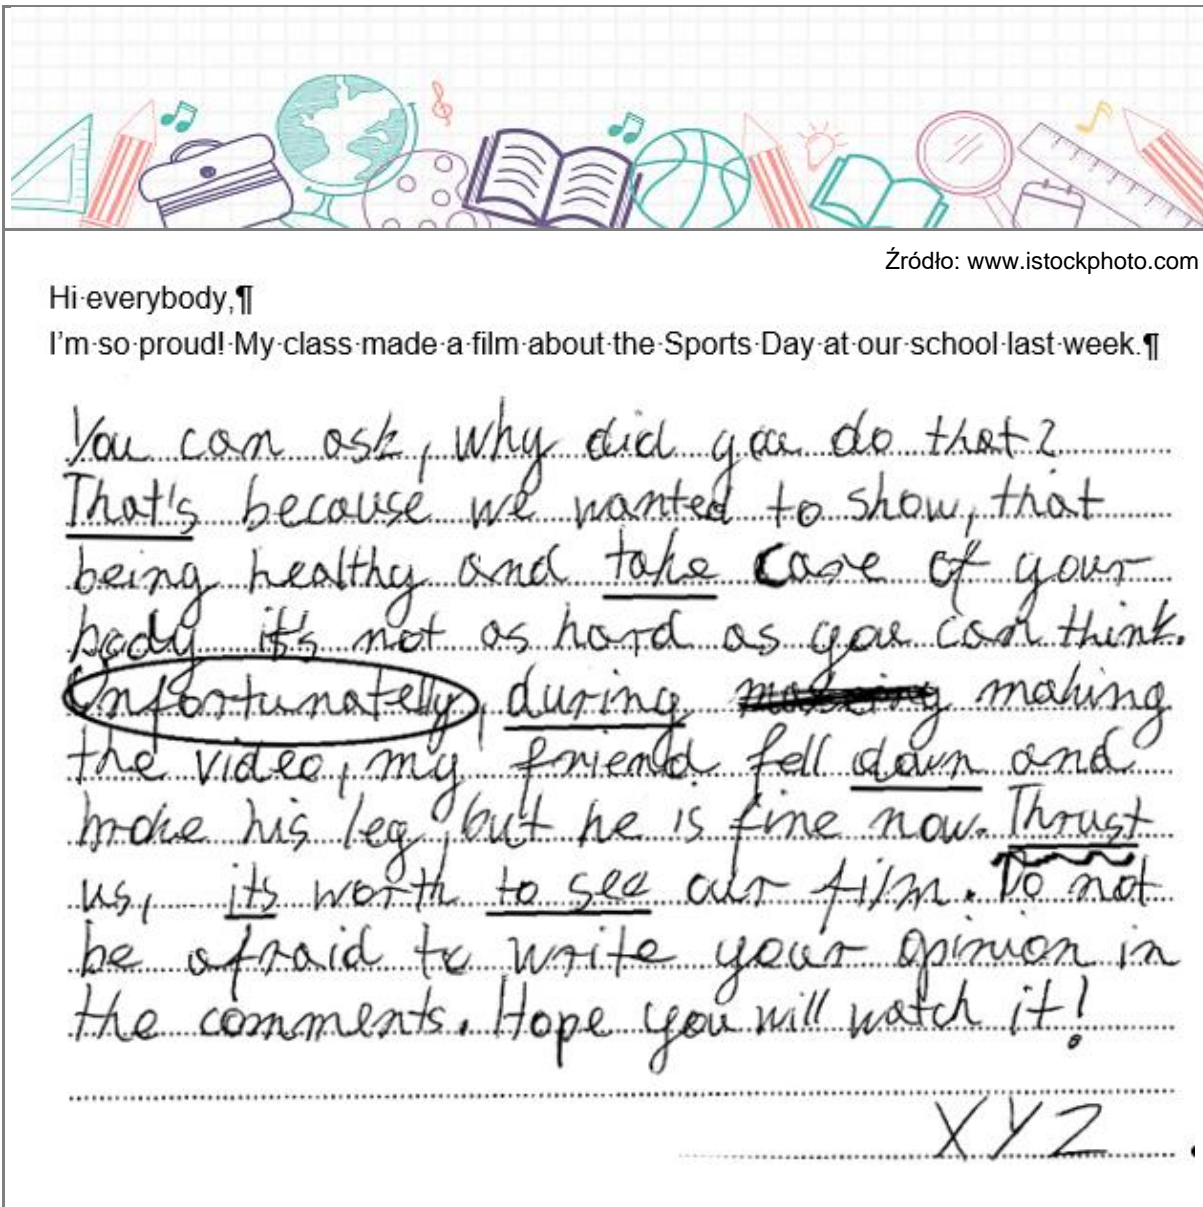 Źródło: www.istockphoto.com
Hi·everybody,¶
I'm·so·proud!·My·class·made·a·film·about·the·Sports·Day·at·our·school·last·week.¶
You can ask, why did you do that?
That's because we wanted to show, that
being healthy and take care of your
body it's not as hard as you can think.
Unfortunatelly, during making
the video, my friend fell down and
broke his leg, but he is fine now. Thrust
us, its worth to see our film. Do not
be afraid to write your opinion in
the comments. Hope you will watch it!
XYZ